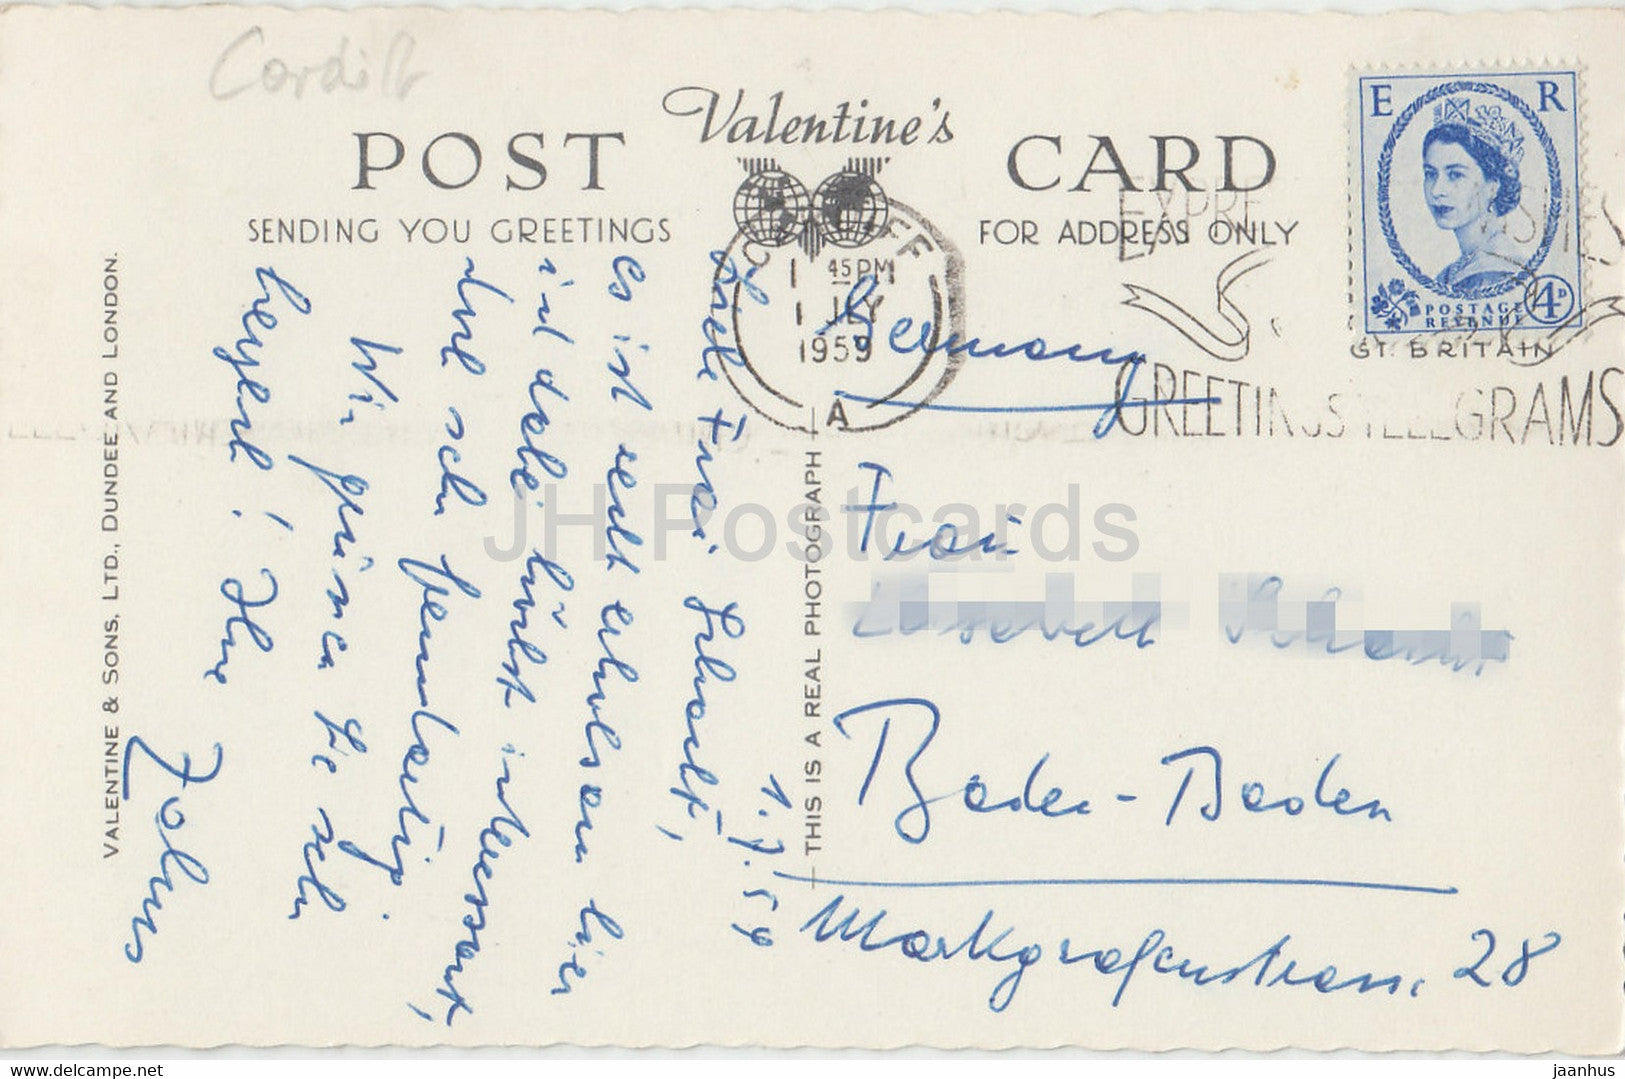 Cardiff
Valentine's
POST CARD
SENDING YOU GREETINGS
FOR ADDRESS ONLY
E R
POSTAGE
REVENUE
4D
GT. BRITAIN
FF
45 PM
1 JLY
1959
A
EXPRE
GREETINGS TELEGRAMS
VALENTINE & SONS, LTD., DUNDEE AND LONDON.
THIS IS A REAL PHOTOGRAPH
1.7.59
Frau
es ist sehr erholsam hier
und dabei höchst interessant,
sehr fremdartig.
Wir grüssen Sie sehr
herzlich! Ihre
Germany
Frau
Baden-Baden
Markgrafenstrass. 28
JH Postcards
delcampe.net
jaanhus